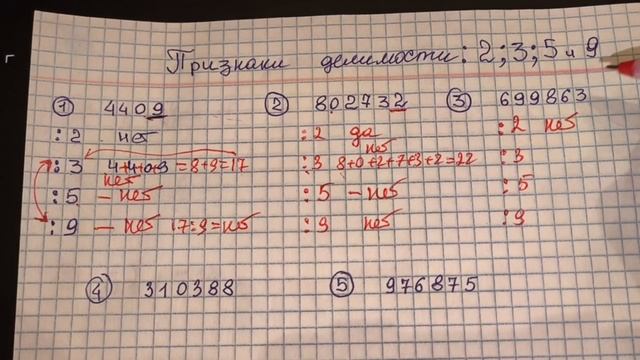 Признаки делимости: 2; 3; 5 и 9
① 4409
:2 нет
:3 4+4+0+9 = 8+9=17
нет
:5 — нет
:9 — нет 17:9=нет
② 802732
:2 да
:3 8+0+2+7+3+2=22
нет
:5 — нет
:9 нет
③ 699863
:2 нет
:3
:5
:9
④ 310388
⑤ 976875